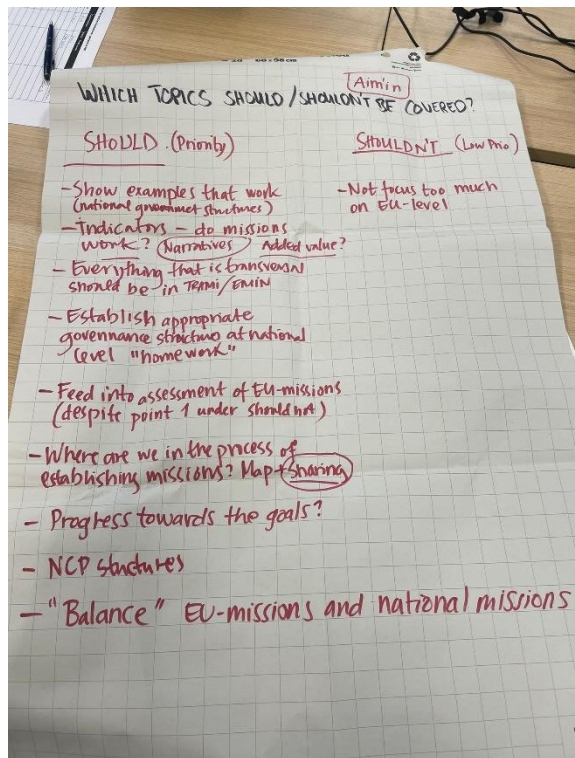 60 x 98 cm
Aim'in
WHICH TOPICS SHOULD/SHOULDN'T BE COVERED?
SHOULD. (Priority)
SHOULDN'T (Low Prio)
- Show examples that work
(national governmet structures)
- Indicators - do missions
work? Narratives Added value?
- Everything that is transversal
should be in TRAMI/EMIN
- Establish appropriate
governance structure at national
level "homework"
- Feed into assessment of EU-missions
(despite point 1 under should not)
- Where are we in the process of
establishing missions? Map + Sharing
- Progress towards the goals?
- NCP structures
- "Balance" EU-missions and national missions
- Not focus too much
on EU-level